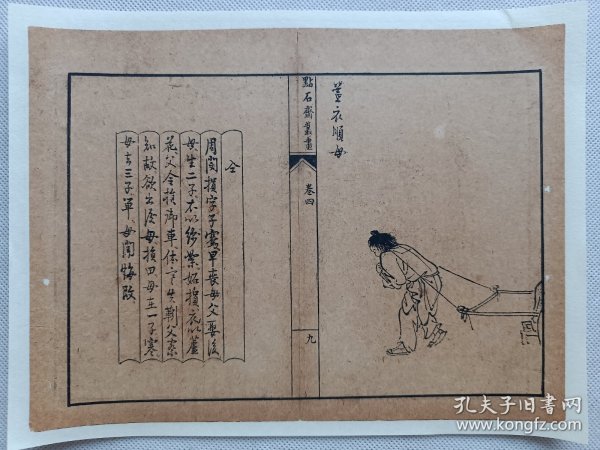 蘆衣順母
點石齋叢畫
卷四
九
仝
周閔損字子騫早喪母父娶後
母生二子衣以綿絮妬損衣以蘆
花父令損御車体寒失靷父察
知故欲出後母損曰母在一子寒
母去三子單母聞悔改
孔夫子旧書网
www.kongfz.com